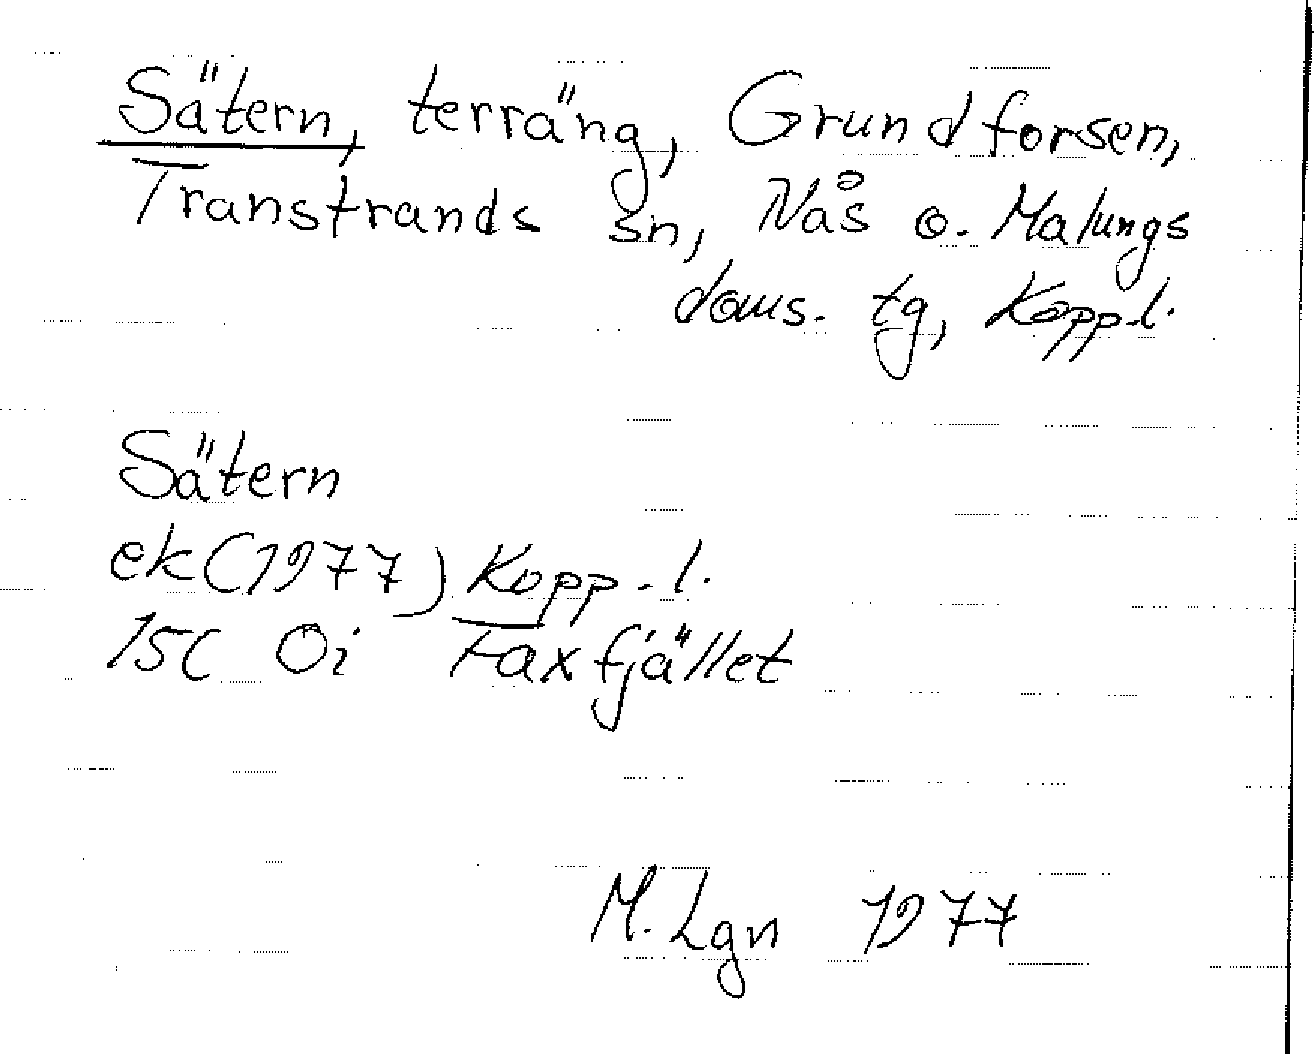 Sätern, terräng, Grundforsen,
Transtrands sn, Nås o. Malungs
doms. tg, Kopp.l.
Sätern
ek (1977) Kopp.l.
15C 0i Faxfjället
M. Lgn 1977